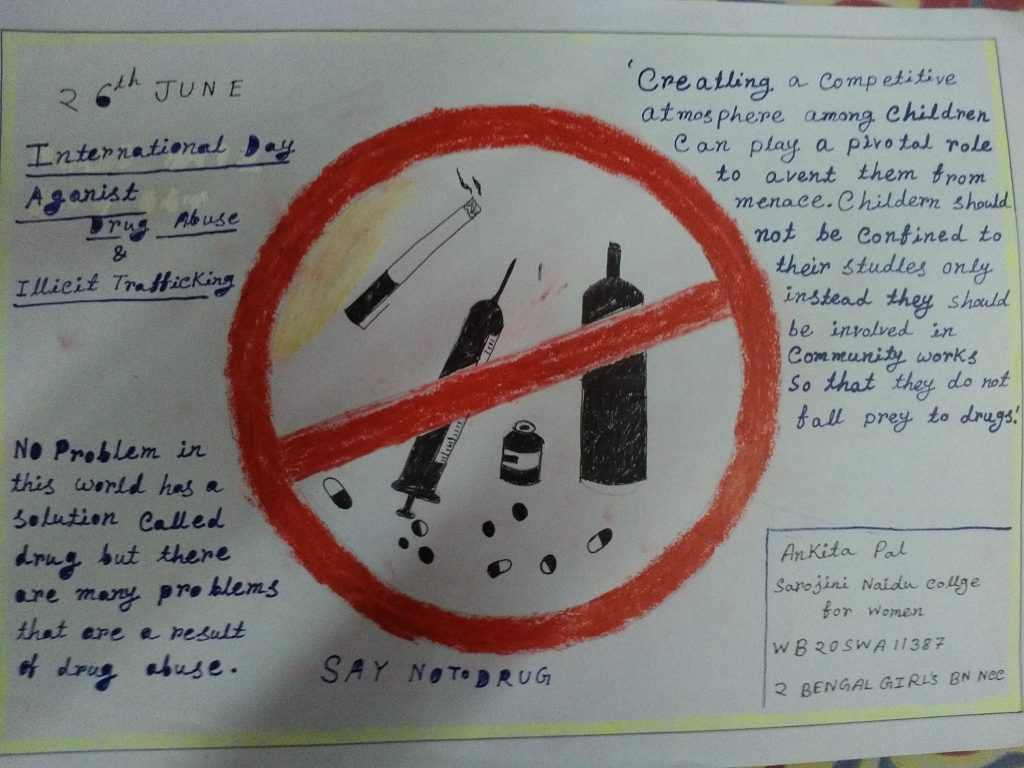 26th JUNE
International Day
Aganist
Drug Abuse
&
Illicit Trafficking
No Problem in
this world has a
solution Called
drug but there
are many problems
that are a result
of drug abuse.
SAY NOTO DRUG
'Creatling a Competitive
atmosphere among Children
Can play a pivotal role
to avent them from
menace. Childern should
not be Confined to
their studies only
instead they should
be involved in
Community works
So that they do not
fall prey to drugs.'
Ankita Pal
Sarojini Naidu collge
for Women
WB20SWA11387
2 BENGAL GIRL'S BN NCC